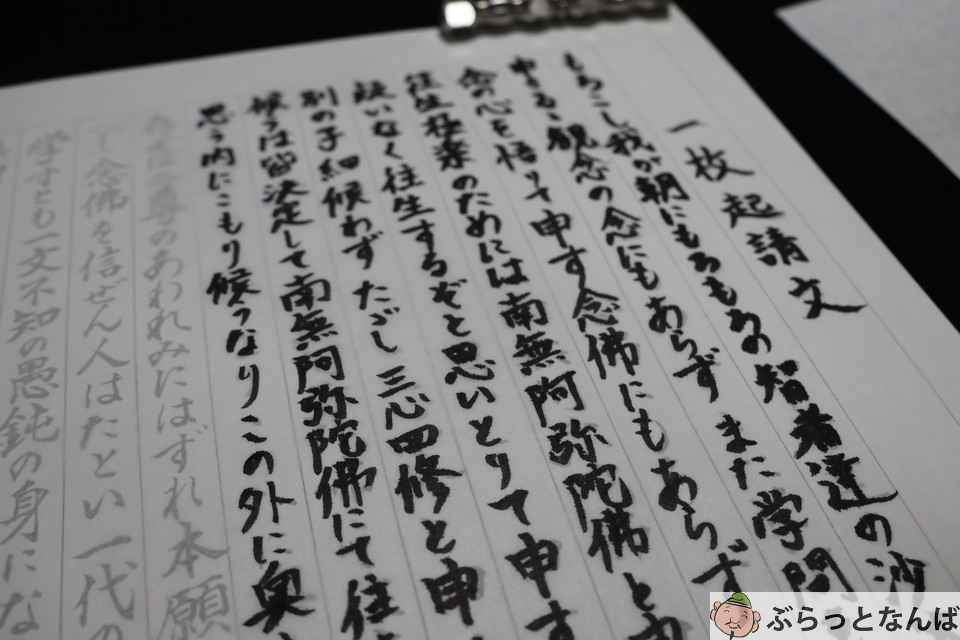 一枚起請文
もろこし我が朝にもろもろの智者達の沙
申さるる観念の念にもあらず また学問
念の心を悟りて申す念佛にもあらず
往生極楽のためには南無阿弥陀佛と申
疑いなく往生するぞと思いとりて申す
別の子細候わず ただし三心四修と申
候うは皆決定して南無阿弥陀佛にて往
思う内にこもり候うなりこの外に奥
のあわれみにはずれ本願
念佛を信ぜん人はたとい一代の
学すとも一文不知の愚鈍の身にな
ぶらっとなんば